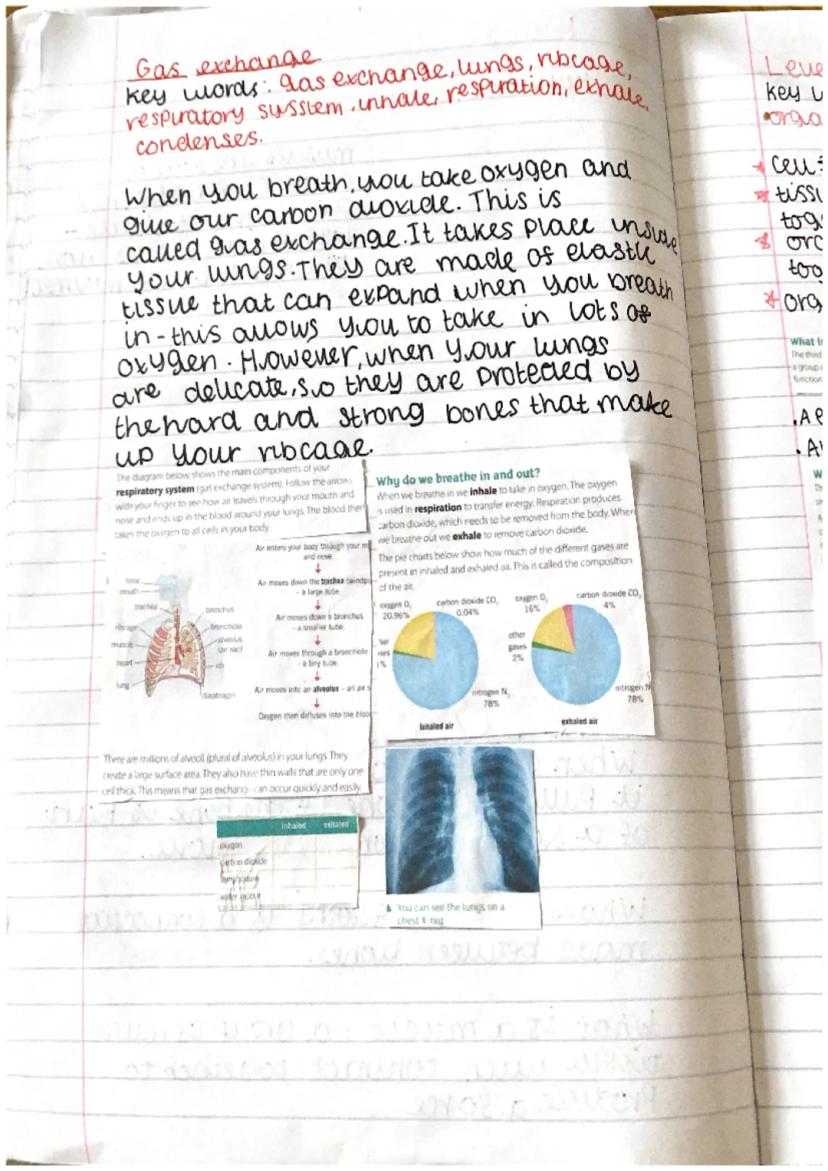 Gas exchange
key words: gas exchange, lungs, ribcage,
respiratory susstem, inhale, respiration, exhale,
condenses.
When you breath, you take oxygen and
give our carbon dioxide. This is
called gas exchange. It takes place inside
your lungs. They are made of elastic
tissue that can expand when you breath
in - this allows you to take in lots of
oxygen. However, when your lungs
are delicate, so they are protected by
the hard and strong bones that make
up your ribcage.
The diagram below shows the main components of your
respiratory system (gas exchange system). Follow the arrows
with your finger to see how air travels through your mouth and
nose and ends up in the blood around your lungs. The blood then
takes the oxygen to all cells in your body.
Air enters your body through your
and nose.
Air moves down the trachea
- a large tube.
Air moves down a bronchus
- a smaller tube.
Air moves through a bronchiole
- a tiny tube.
Air moves into an alveolus - an air
Oxygen then diffuses into the
nose
mouth
trachea
ribcage
muscle
heart
lung
bronchus
bronchiole
alveolus
(air sac)
rib
diaphragm
There are millions of alveoli (plural of alveolus) in your lungs. They
create a large surface area. They also have thin walls that are only one
cell thick. This means that gas exchang can occur quickly and easily.
Why do we breathe in and out?
When we breathe in we inhale to take in oxygen. The oxygen
is used in respiration to transfer energy. Respiration produces
carbon dioxide, which needs to be removed from the body. When
we breathe out we exhale to remove carbon dioxide.
The pie charts below show how much of the different gases are
present in inhaled and exhaled air. This is called the composition
of the air.
oxygen O₂
20.96%
carbon dioxide CO₂
0.04%
1%
nitrogen N₂
78%
inhaled air
oxygen O₂
16%
carbon dioxide CO₂
4%
other
gases
2%
nitrogen N
78%
exhaled air
inhaled exhaled
oxygen
carbon dioxide
temperature
water vapour
You can see the lungs on a
chest X-ray.
key
cell
What i
The third
a group
function